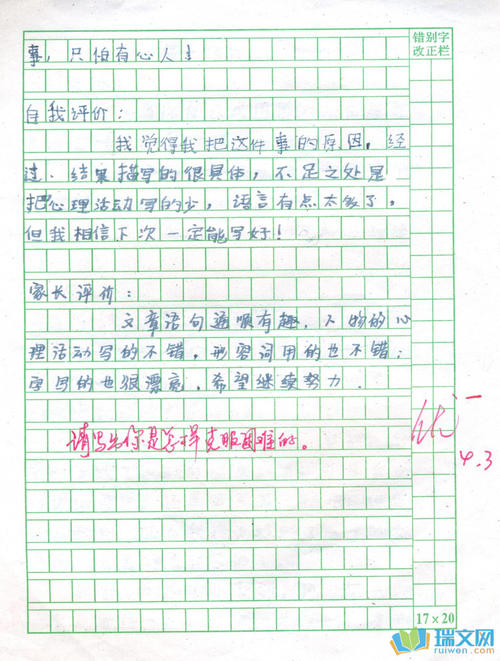 错别字
改正栏
事，只怕有心人！
自我评价：
我觉得我把这件事的原因，经
过、结果描写的很具体，不足之处是
把心理活动写的少，语言有点太多了，
但我相信下次一定能写好！
家长评价：
文章语句通顺有趣，人物的心
理活动写的不错，形容词用的也不错；
字写的也很漂亮，希望继续努力．
请写出你是怎样克服困难的。
优－
4.3
17×20
瑞文网
ruiwen.com